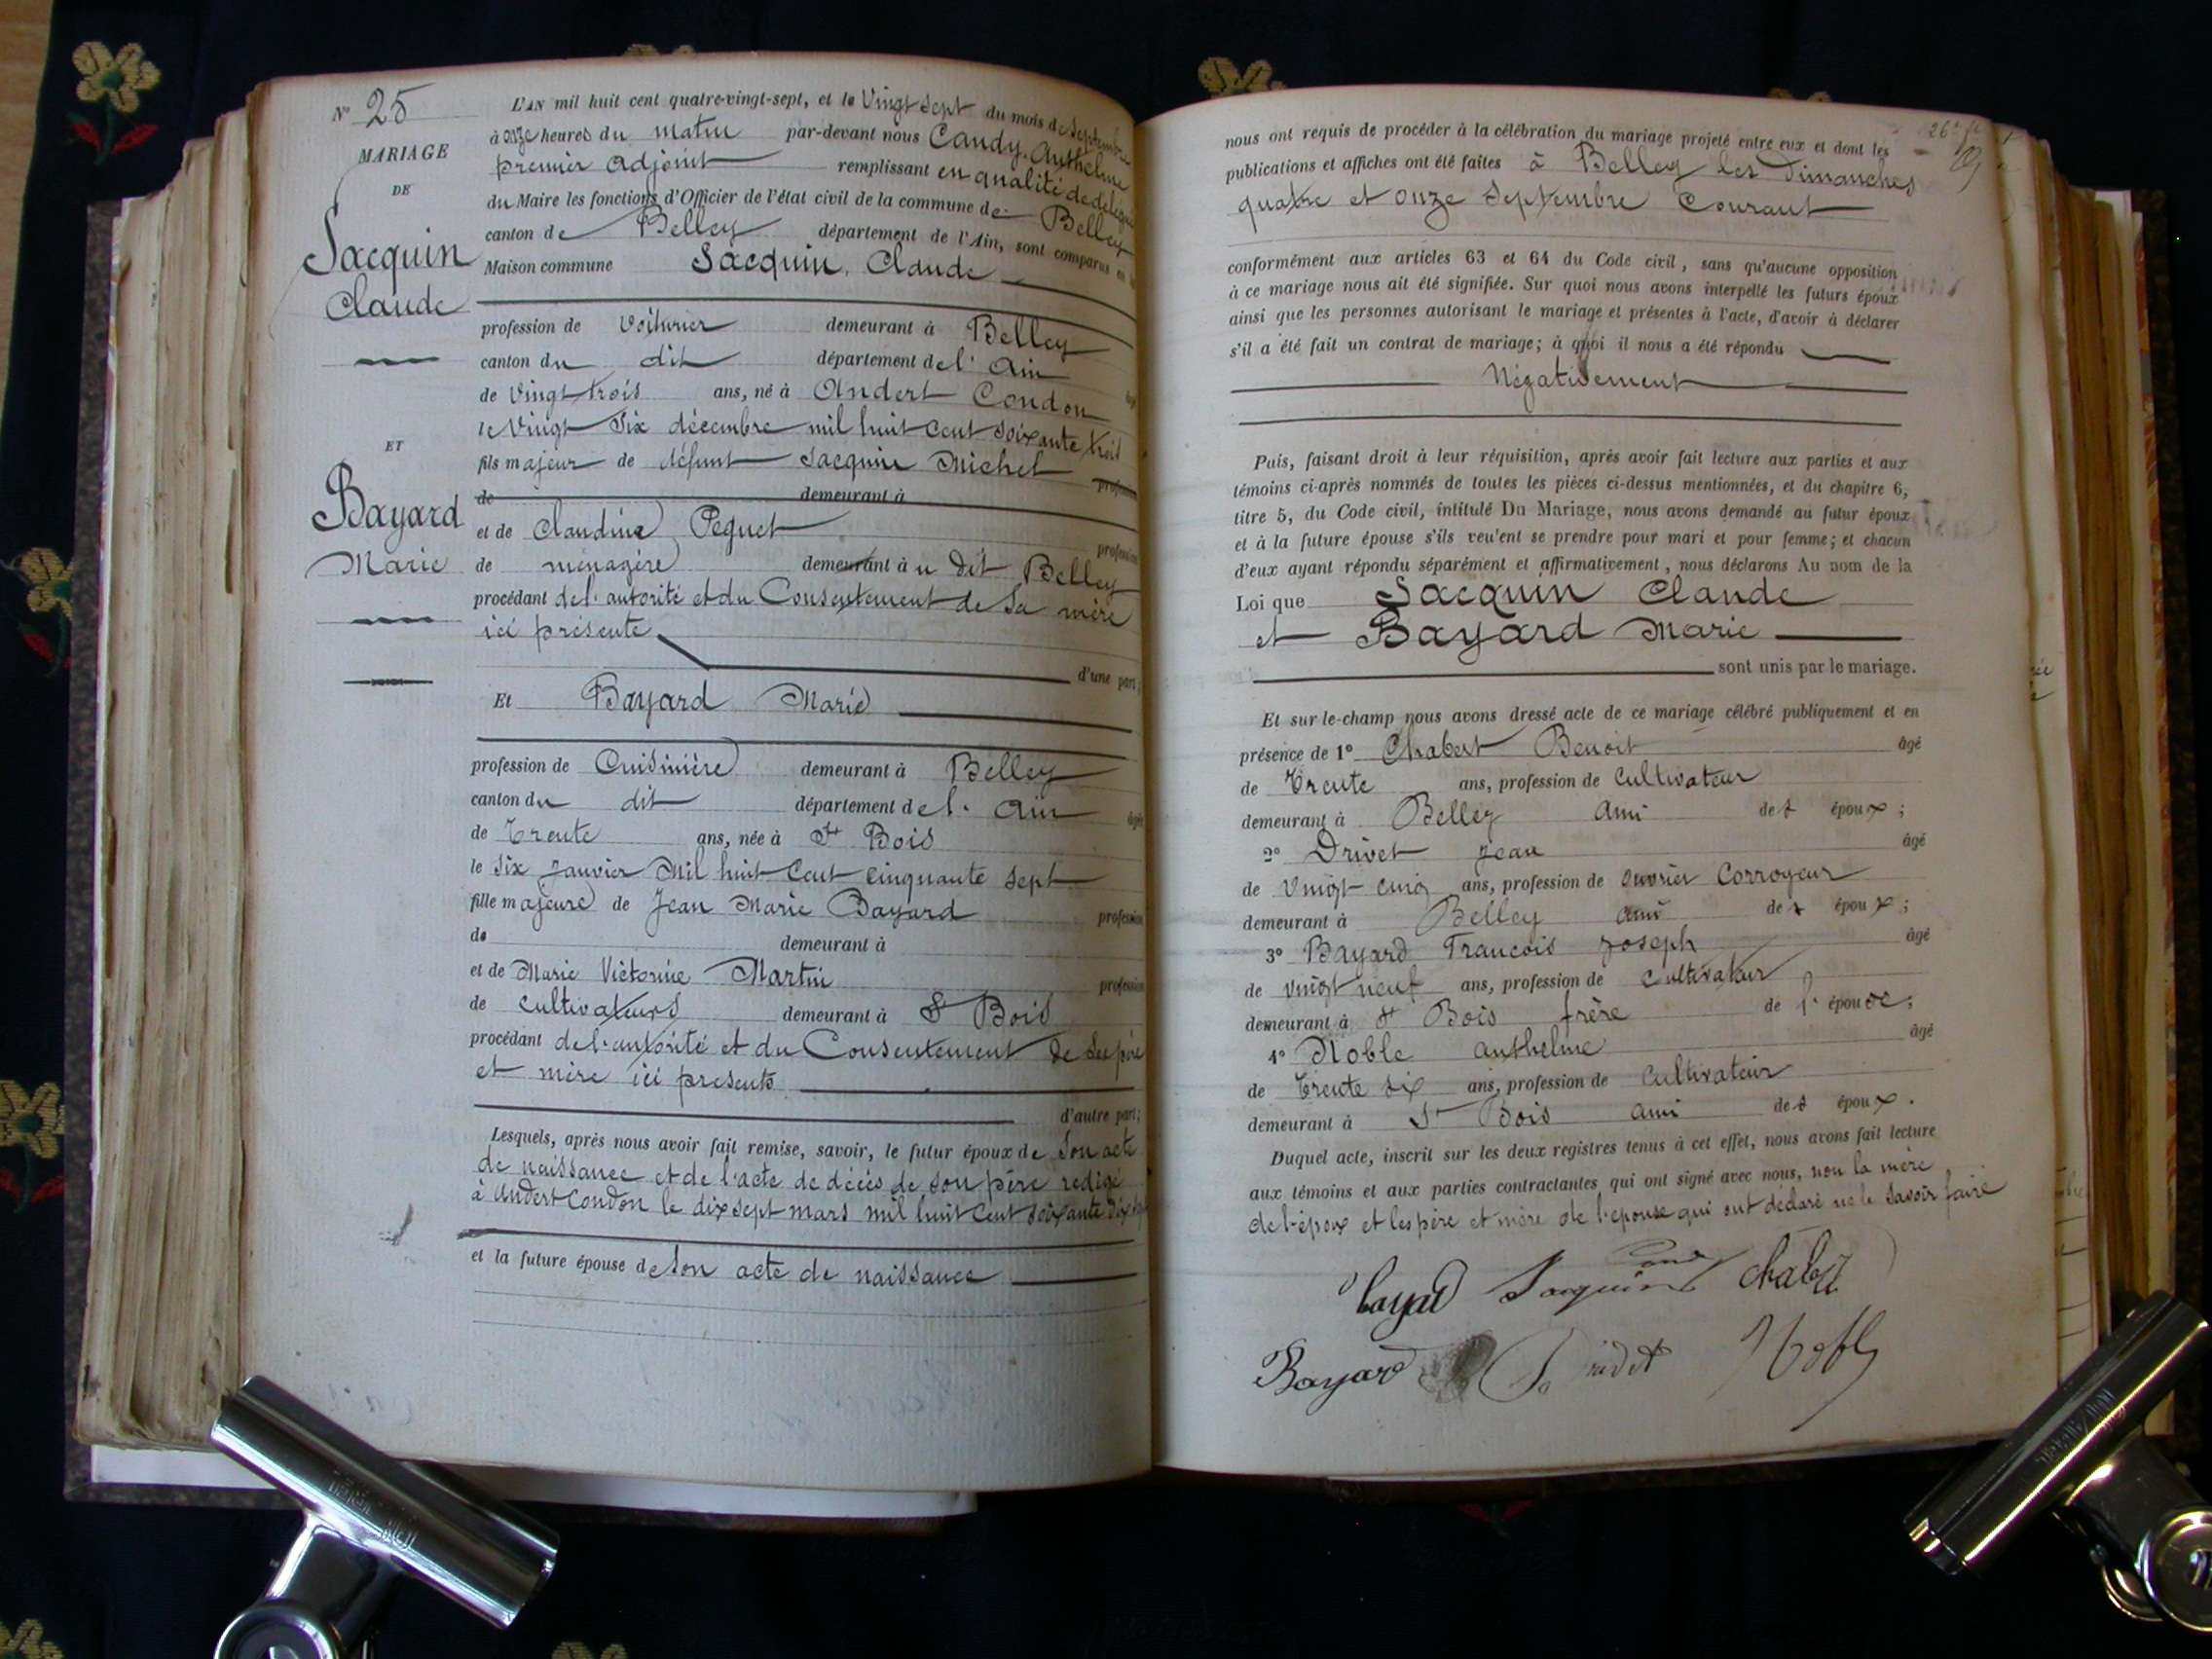 N° 25
MARIAGE
DE
Jacquin
Claude
ET
Bayard
Marie
L'AN mil huit cent quatre-vingt-sept, et le Vingt sept du mois de Septembre
à onze heures du matin par-devant nous Candy, Anthelme
premier adjoint remplissant en qualité de délégué
du Maire les fonctions d'Officier de l'état civil de la commune de Belley
canton de Belley département de l'Ain, sont comparus en la
Maison commune Jacquin, Claude
profession de Voiturier demeurant à Belley
canton du dit département de l'Ain
de Vingt trois ans, né à Andert Condon
le Vingt Six décembre mil huit cent soixante trois
fils majeur de défunt Jacquin Michel profession
de demeurant à
et de Claudine Peguet profession
de ménagère demeurant à u dit Belley
procédant de l'autorité et du Consentement de Sa mère
ici présente
d'une part;
Et Bayard Marie
profession de Cuisinière demeurant à Belley
canton du dit département de l'Ain âgée
de Trente ans, née à St Bois
le Six Janvier Mil huit Cent cinquante Sept
fille majeure de Jean Marie Bayard profession
de demeurant à
et de Marie Victorine Martin profession
de cultivateurs demeurant à St Bois
procédant de l'autorité et du Consentement de Ses père
et mère ici présents
d'autre part;
Lesquels, après nous avoir fait remise, savoir, le futur époux de Son acte
de naissance et de l'acte de décès de son père rédigé
à Andert Condon le dix sept mars mil huit Cent soixante dix
et la future épouse de Son acte de naissance
26
nous ont requis de procéder à la célébration du mariage projeté entre eux et dont les
publications et affiches ont été faites à Belley les Dimanches
quatre et onze Septembre Courant
conformément aux articles 63 et 64 du Code civil, sans qu'aucune opposition
à ce mariage nous ait été signifiée. Sur quoi nous avons interpellé les futurs époux
ainsi que les personnes autorisant le mariage et présentes à l'acte, d'avoir à déclarer
s'il a été fait un contrat de mariage; à quoi il nous a été répondu
Négativement
Puis, faisant droit à leur réquisition, après avoir fait lecture aux parties et aux
témoins ci-après nommés de toutes les pièces ci-dessus mentionnées, et du chapitre 6,
titre 5, du Code civil, intitulé Du Mariage, nous avons demandé au futur époux
et à la future épouse s'ils veu'ent se prendre pour mari et pour femme; et chacun
d'eux ayant répondu séparément et affirmativement, nous déclarons Au nom de la
Loi que Jacquin Claude
et Bayard Marie
sont unis par le mariage.
Et sur-le-champ nous avons dressé acte de ce mariage célébré publiquement et en
présence de 1° Chabert Benoit âgé
de Trente ans, profession de Cultivateur
demeurant à Belley ami des époux;
2° Drivet Jean âgé
de Vingt cinq ans, profession de ouvrier Corroyeur
demeurant à Belley ami des époux;
3° Bayard Francois Joseph âgé
de vingt neuf ans, profession de Cultivateur
demeurant à St Bois frère de l'épouse;
4° Noble Anthelme âgé
de Trente six ans, profession de Cultivateur
demeurant à St Bois ami des époux.
Duquel acte, inscrit sur les deux registres tenus à cet effet, nous avons fait lecture
aux témoins et aux parties contractantes qui ont signé avec nous, non la mère
de l'époux et les père et mère de l'épouse qui ont déclaré ne le Savoir faire
Bayard Jacquin Candy Chabert
Bayard Drivet Noble